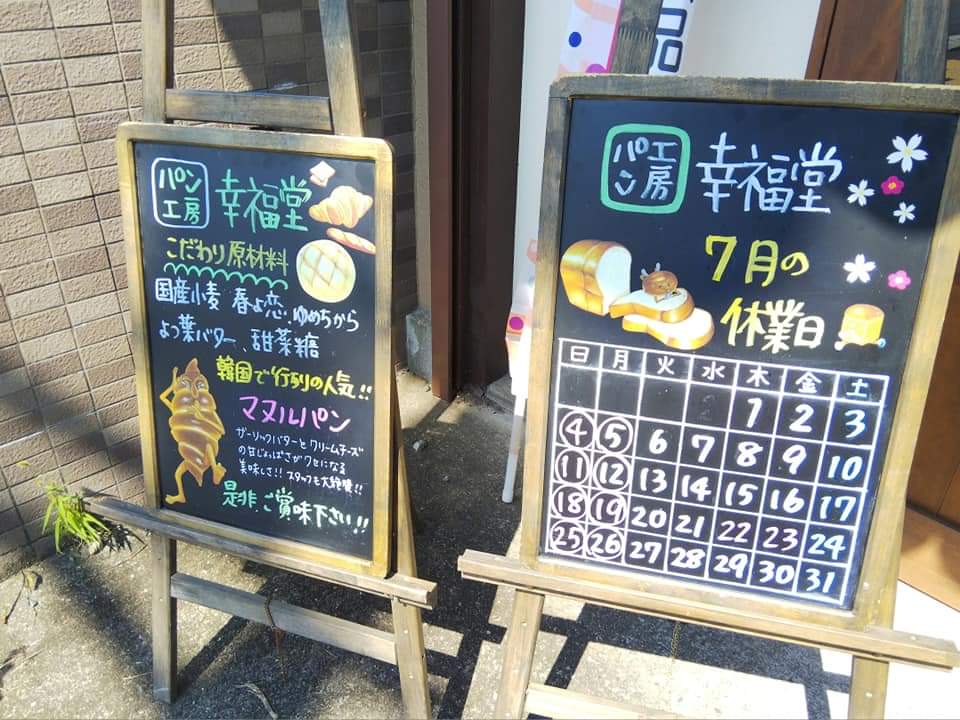 パン
工房
幸福堂
こだわり原材料
国産小麦 春よ恋、ゆめちから
よつ葉バター、甜菜糖
韓国で行列の人気!!
マヌルパン
ガーリックバターとクリームチーズ
の甘じょっぱさがクセになる
美味しさ!! スタッフも大絶賛!!
是非、ご賞味下さい!!
品
パン
工房
幸福堂
7月の
休業日
日 月 火 水 木 金 土
1 2 3
4 5 6 7 8 9 10
11 12 13 14 15 16 17
18 19 20 21 22 23 24
25 26 27 28 29 30 31